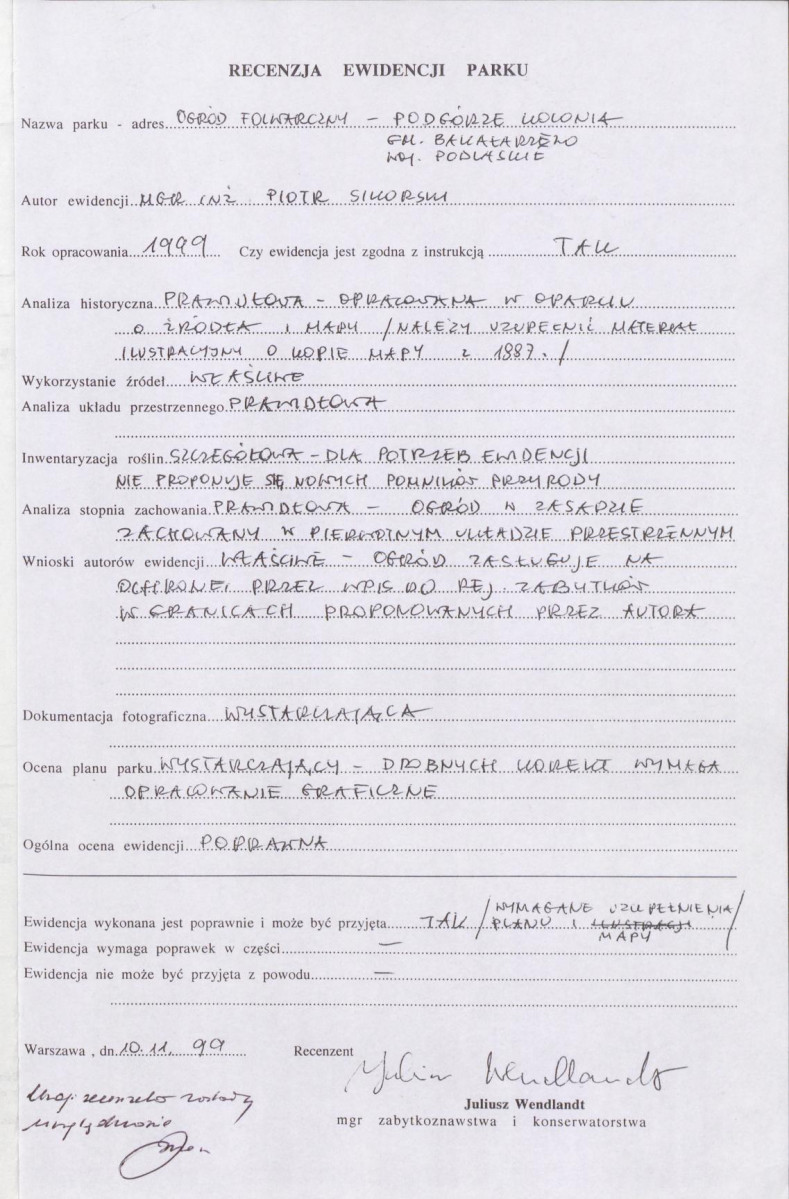 RECENZJA EWIDENCJI PARKU
Nazwa parku - adres OGRÓD FOLWARCZNY – PODGÓRZE KOLONIA
GM. BAKAŁARZEWO
WOJ. PODLASKIE
Autor ewidencji MGR INŻ PIOTR SIKORSKI
Rok opracowania 1999 Czy ewidencja jest zgodna z instrukcją TAK
Analiza historyczna PRAWIDŁOWA – OPRACOWANA W OPARCIU
O ŹRÓDŁA I MAPY /NALEŻY UZUPEŁNIĆ MATERIAŁ
ILUSTRACYJNY O KOPIE MAPY Z 1887./
Wykorzystanie źródeł WŁAŚCIWE
Analiza układu przestrzennego PRAWIDŁOWA
Inwentaryzacja roślin SZCZEGÓŁOWA – DLA POTRZEB EWIDENCJI
NIE PROPONUJE SIĘ NOWYCH POMNIKÓW PRZYRODY
Analiza stopnia zachowania PRAWIDŁOWA – OGRÓD W ZASADZIE
ZACHOWANY W PIERWOTNYM UKŁADZIE PRZESTRZENNYM
Wnioski autorów ewidencji WŁAŚCIWE – OGRÓD ZASŁUGUJE NA
OCHRONĘ PRZEZ WPIS DO REJ. ZABYTKÓW
W GRANICACH PROPONOWANYCH PRZEZ AUTORA
Dokumentacja fotograficzna WYSTARCZAJĄCA
Ocena planu parku WYSTARCZAJĄCY – DROBNYCH KOREKT WYMAGA
OPRACOWANIE GRAFICZNE
Ogólna ocena ewidencji POPRAWNA
Ewidencja wykonana jest poprawnie i może być przyjęta TAK /WYMAGANE UZUPEŁNIENIA
PLANU I ILUSTRACJI
MAPY/
Ewidencja wymaga poprawek w części —
Ewidencja nie może być przyjęta z powodu —
Warszawa , dn. 10.11. 99 Recenzent
Juliusz Wendlandt
Juliusz Wendlandt
mgr zabytkoznawstwa i konserwatorstwa
Uwagi recenzenta zostały
uwzględnione